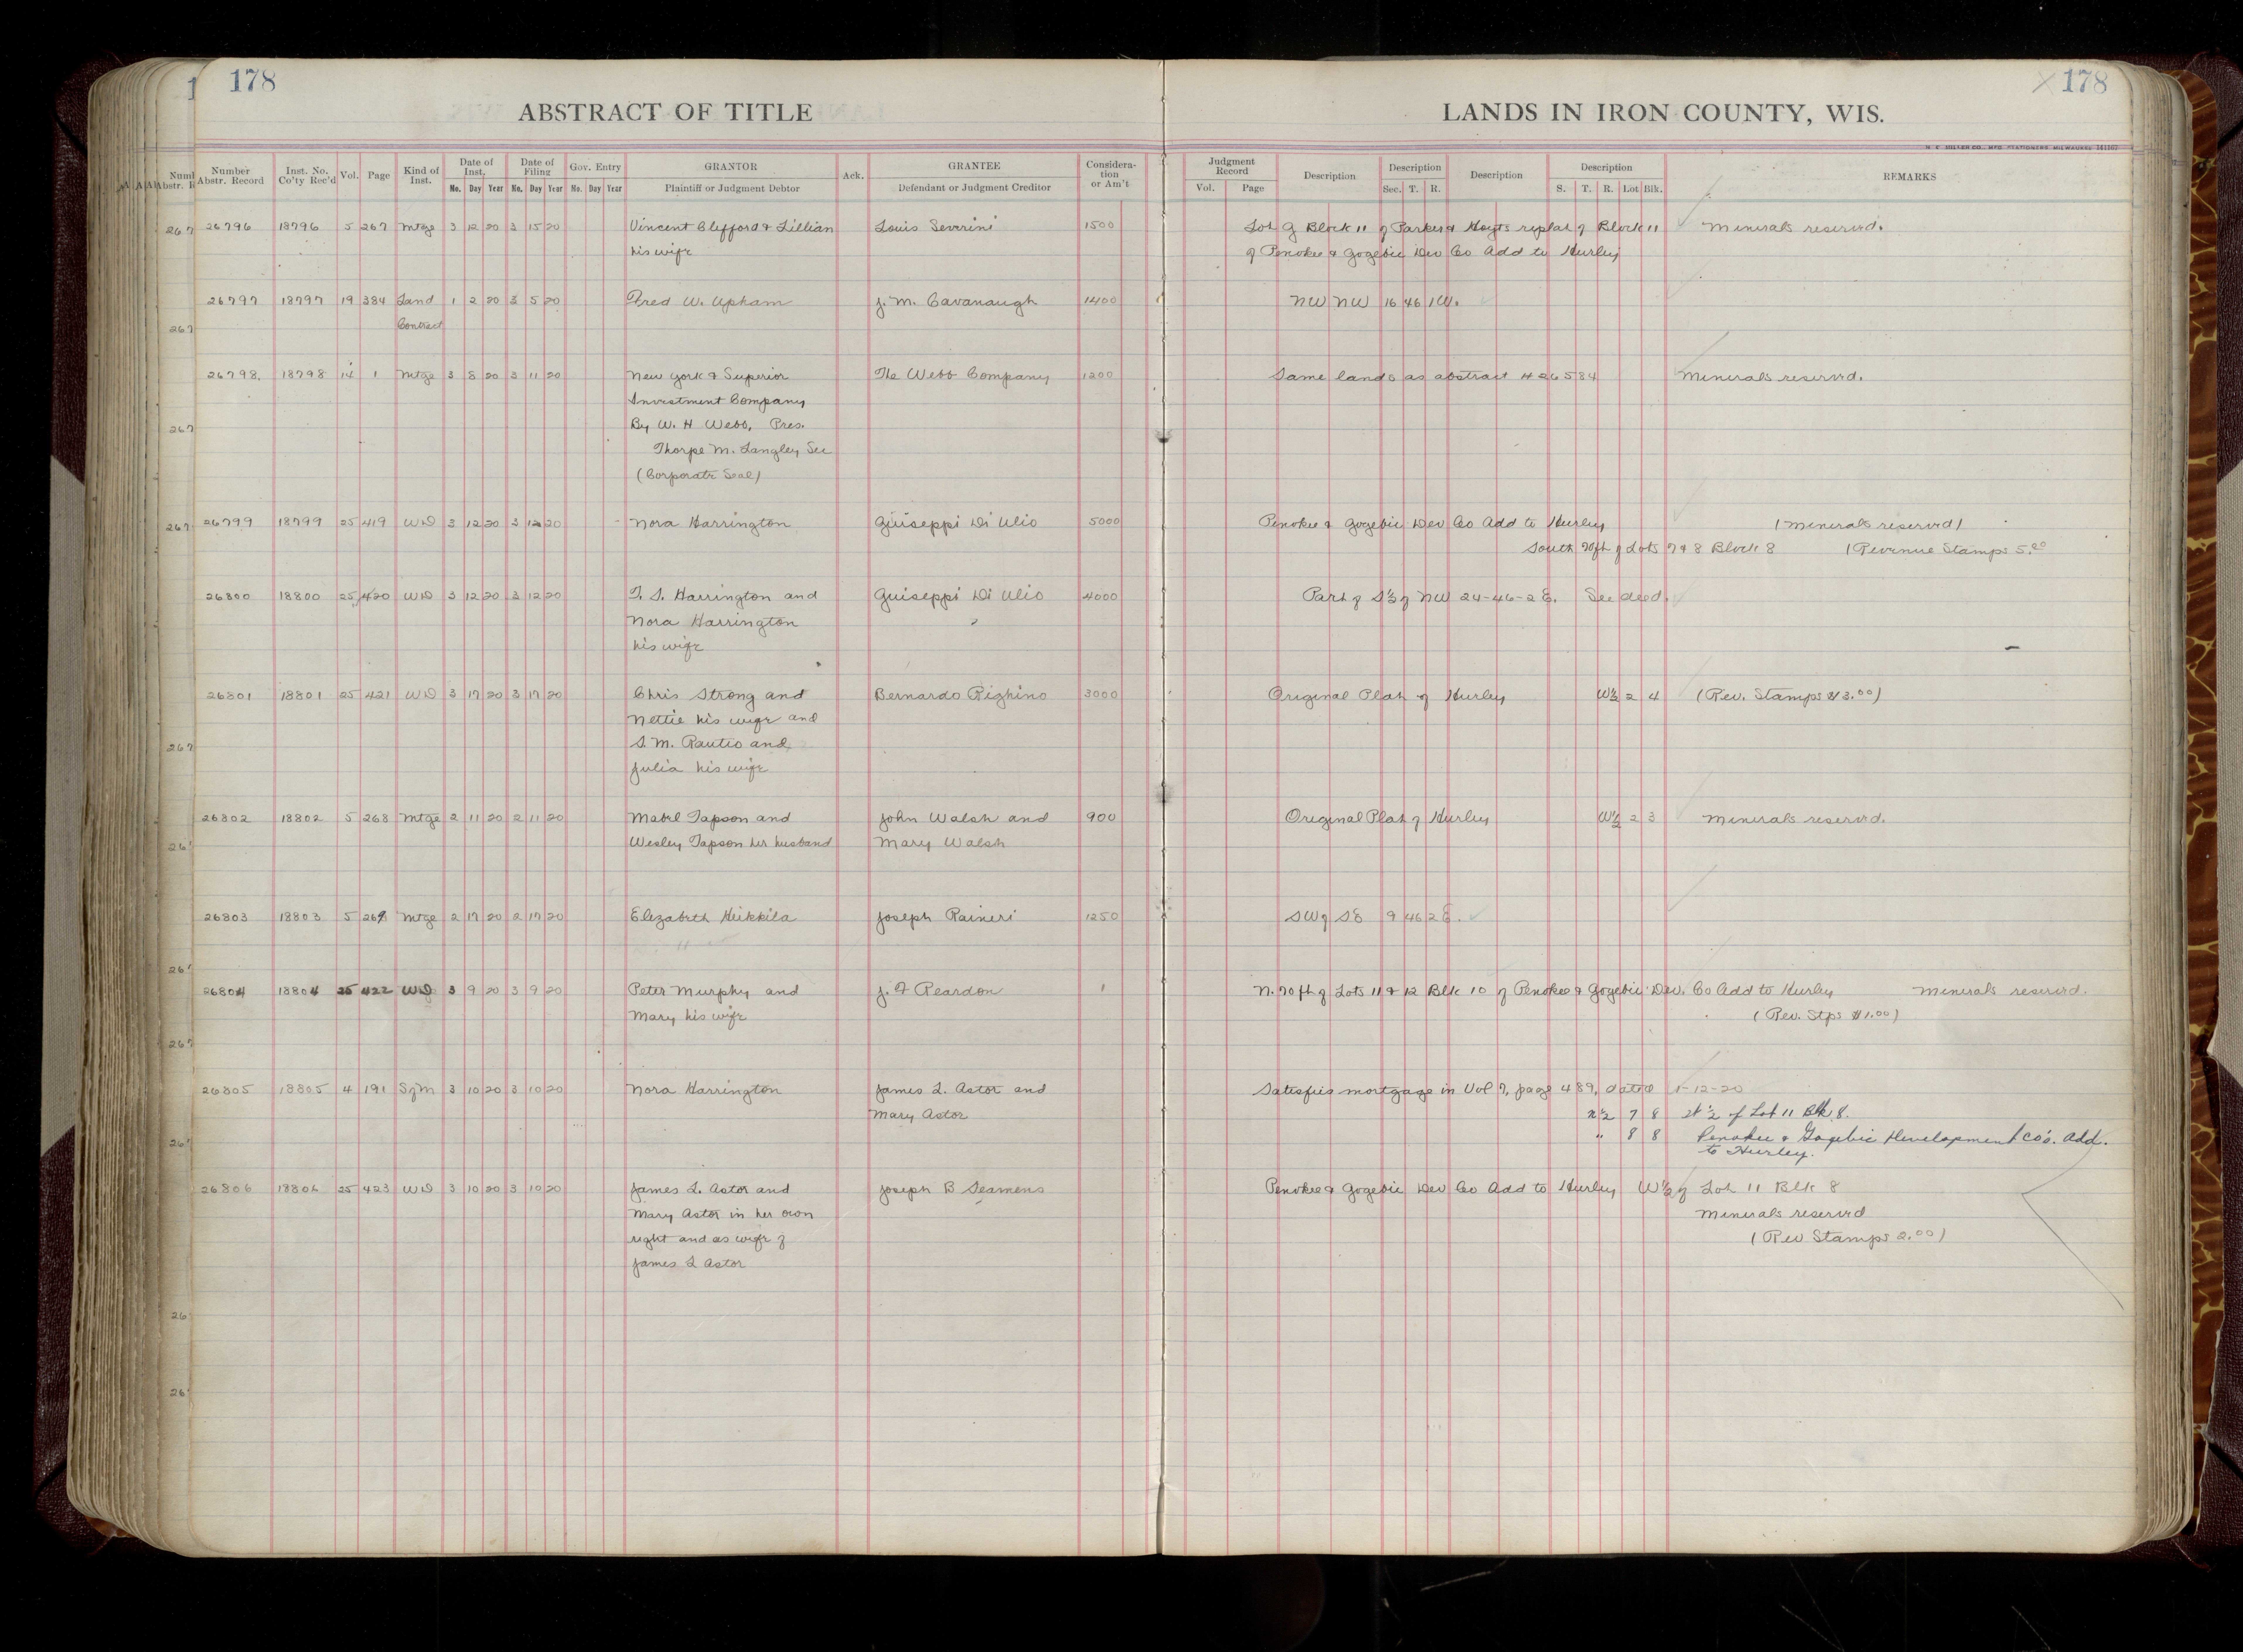 178
ABSTRACT OF TITLE
178
LANDS IN IRON COUNTY, WIS.
Number Abstr. Record
Inst. No. Co'ty Rec'd
Vol.
Page
Kind of Inst.
Date of Inst.
No. Day Year
Date of Filing
No. Day Year
Gov. Entry
No. Day Year
GRANTOR
Plaintiff or Judgment Debtor
Ack.
GRANTEE
Defendant or Judgment Creditor
Considera-
tion
or Am't
Judgment Record
Vol. Page
Description
Description
Sec. T. R.
Description
Description
S. T. R. Lot Blk.
REMARKS
26796 18796 5 267 Mtge 3 12 20 3 15 20 Vincent Clifford & Lillian Louis Severini 1500 Lot G Block 11 of Parker & Hoyts replat of Block 11 Minerals reserved.
his wife of Penokee & Gogebic Dev Co Add to Hurley
26797 18797 19 384 Land 1 2 20 3 5 20 Fred W. Upham J. M. Cavanaugh 1400 NW NW 16 46 1W.
Contract
26798. 18798 14 1 Mtge 3 8 20 3 11 20 New York & Superior The Webb Company 1200 Same lands as abstract # 26584 Minerals reserved.
Investment Company
By W. H Webb, Pres.
Thorpe M. Langley Sec
(Corporate Seal)
26799 18799 25 419 WD 3 12 20 3 12 20 Nora Harrington Guiseppi Di Ulio 5000 Penokee & Gogebic Dev Co Add to Hurley (Minerals reserved)
South 70ft of Lots 7 & 8 Block 8 (Revenue Stamps 5.00
26800 18800 25 420 WD 3 12 20 3 12 20 T. S. Harrington and Guiseppi Di Ulio 4000 Part of S½ of NW 24-46-2E. See deed.
Nora Harrington
his wife
26801 18801 25 421 WD 3 17 20 3 17 20 Chris Strong and Bernardo Righino 3000 Original Plat of Hurley W½ 2 4 (Rev. Stamps $3.00)
Nettie his wife and
S. M. Rautio and
Julia his wife
26802 18802 5 268 Mtge 2 11 20 2 11 20 Mabel Tapson and John Walsh and 900 Original Plat of Hurley W½ 2 3 Minerals reserved.
Wesley Tapson her husband Mary Walsh
26803 18803 5 269 Mtge 2 17 20 2 17 20 Elizabeth Heikkila Joseph Raineri 1250 SW of SE 9 46 2E.
26804 18804 25 422 WD 3 9 20 3 9 20 Peter Murphy and J. F Reardon 1 N. 70ft of Lots 11 & 12 Blk 10 of Penokee & Gogebic Dev. Co Add to Hurley Minerals reserved.
Mary his wife (Rev. Stps $1.00)
26805 18805 4 191 SfM 3 10 20 3 10 20 Nora Harrington James L. Astor and Satisfies mortgage in Vol 7, page 489, dated 1-12-20
Mary Astor N½ 7 8 W ½ of Lot 11 Blk 8.
" 8 8 Penokee & Gogebic Development Co's. Add.
to Hurley.
26806 18806 25 423 WD 3 10 20 3 10 20 James L. Astor and Joseph B Seamens Penokee & Gogebic Dev Co Add to Hurley W½ of Lot 11 Blk 8
Mary Astor in her own Minerals reserved
right and as wife of (Rev Stamps 2.00)
James L Astor